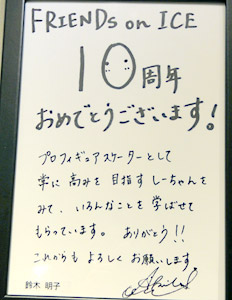 FRIENDs on ICE
10周年
おめでとうございます!
プロフィギュアスケーターとして
常に高みを目指すしーちゃんを
みて、いろんなことを学ばせて
もらっています。ありがとう!!
これからもよろしくお願いします
鈴木 明子